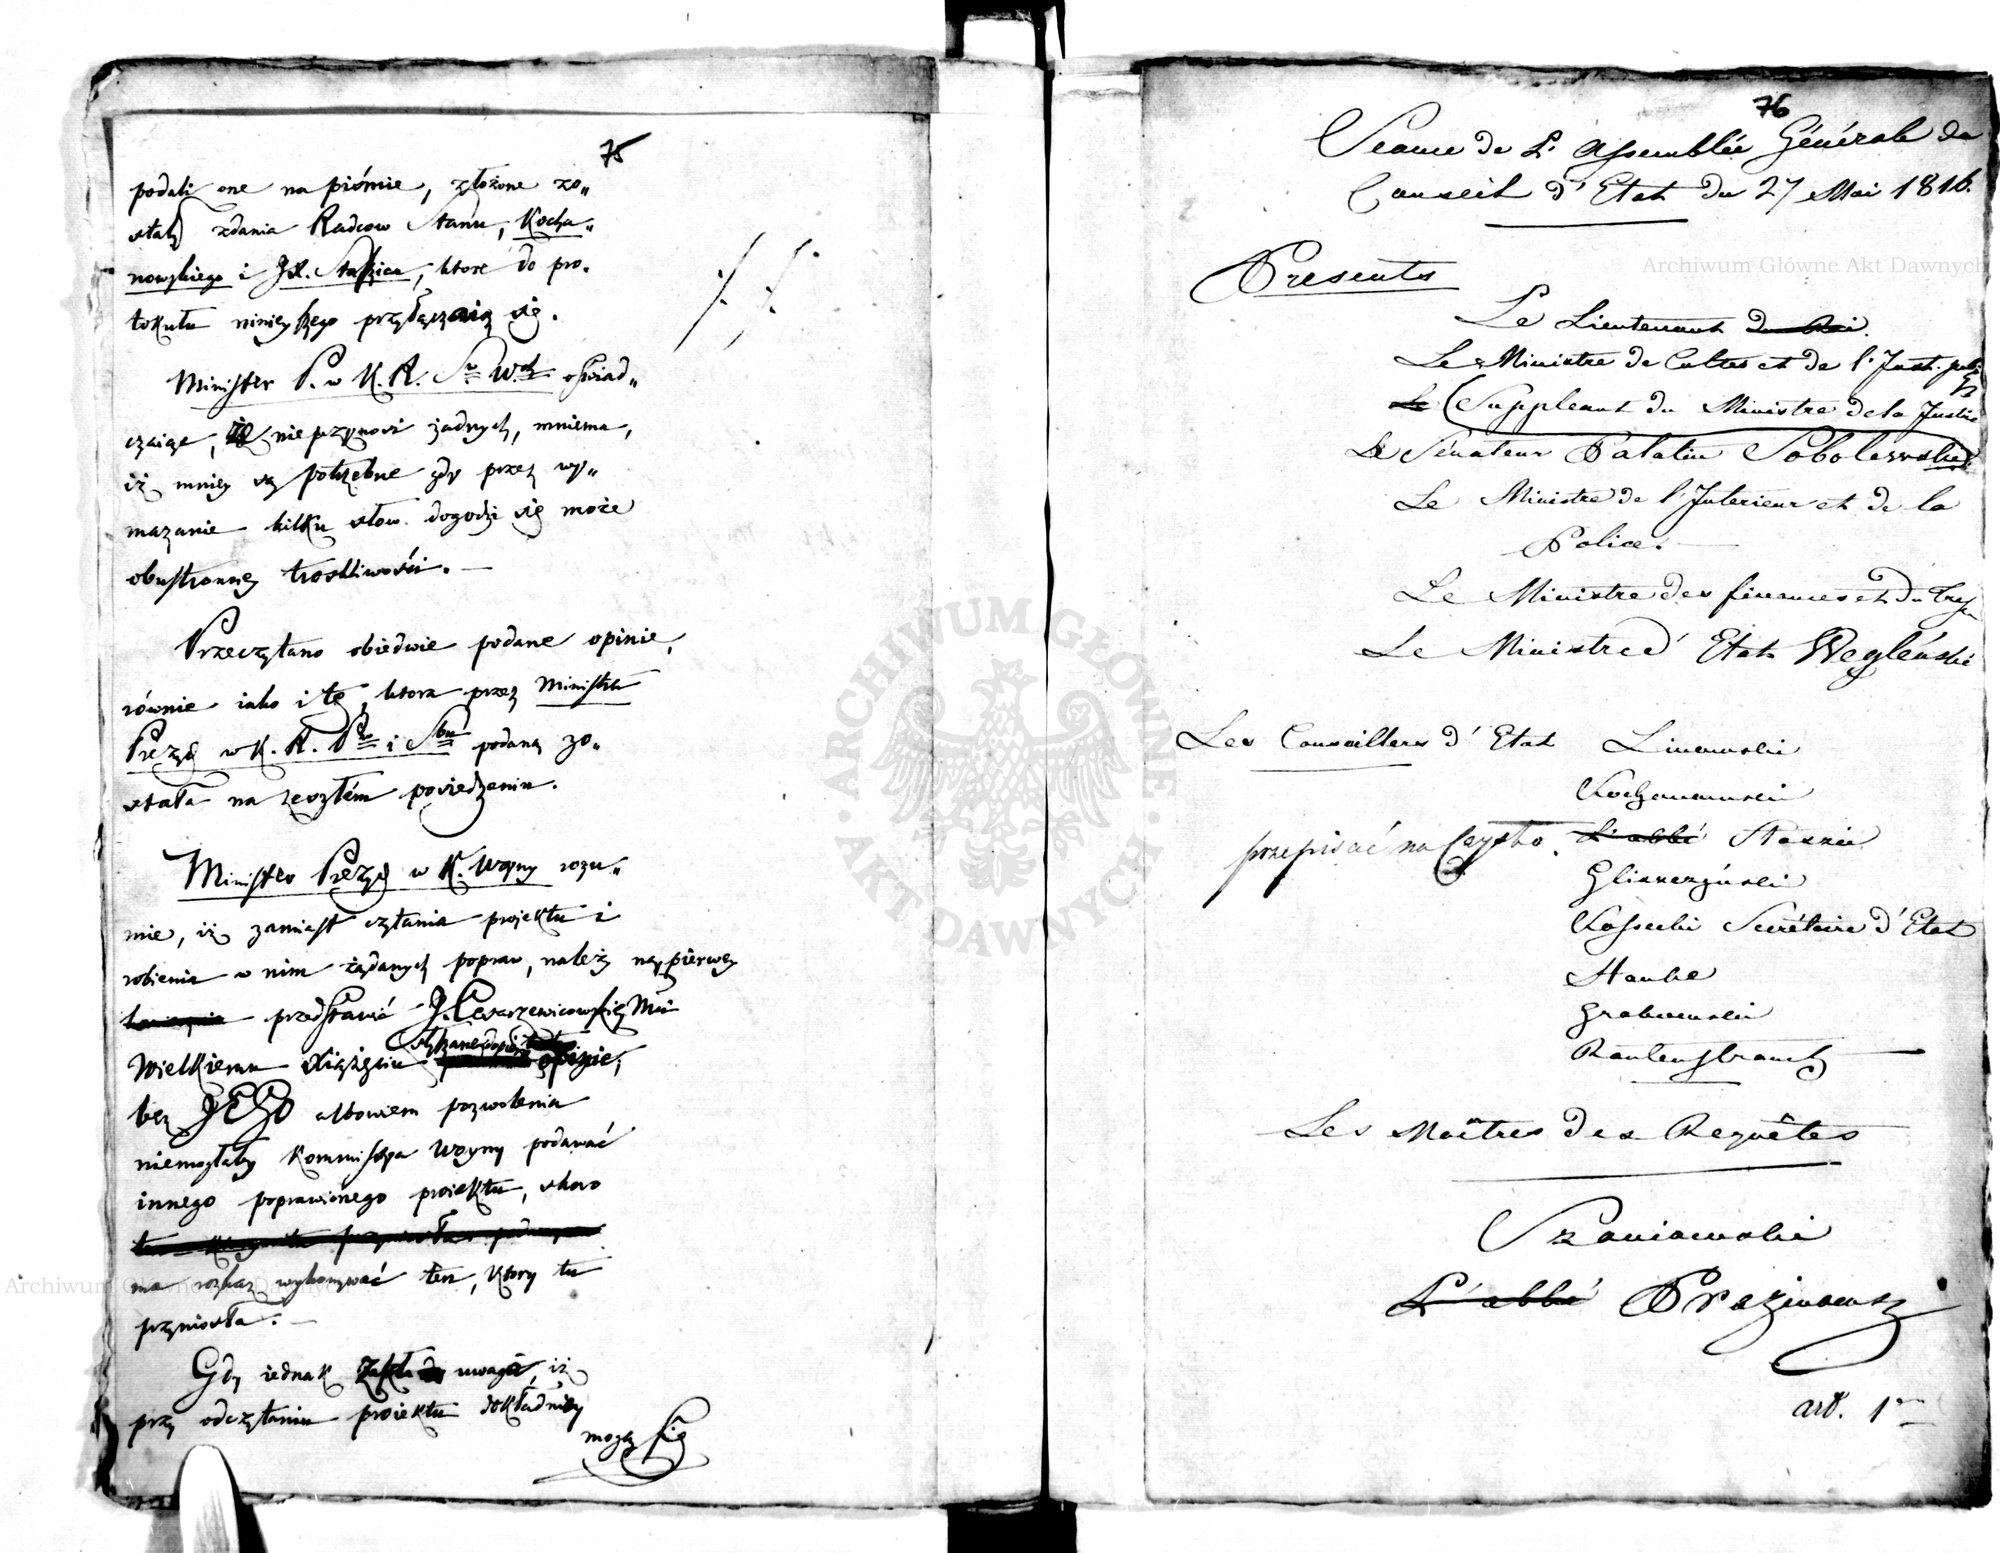 75
podali one na piśmie, złożone zo„
stały zdania Radcow Stanu, Kocha„
nowskiego i JX. Staszica, ktore do pro„
tokułu ninieyszego przyłączaią się.
Minister P. w K. R. Sw Wch oświad„
czaiąc, iż nieprzynosi żadnych, mniema,
iż mniey są potrzebne gdy przez wy„
mazanie kilku słow dogodzi się może
obustronney troskliwości. —
Przeczytano obiedwie podane opinie,
równie iako i tę, ktora przez Ministra
Prezyd w K. R. Pw i Sbu podaną zo„
stała na zeszłém posiedzeniu.
Minister Prezyd w K. Woyny rozu„
mie, iż zamiast czytania projektu i
robienia w nim żądanych popraw, należy naypierwey
przedstawić J. Cesarzewicowskiey Mci
Wielkiemu Xiążęciu słyszane dopiero opinie,
bez JEGO albowiem pozwolenia
niemogłaby Kommissya Woyny podawać
innego poprawionego proiektu, skoro
ma rozkaz wykonywać ten, ktory tu
przyniosła. —
Gdy iednak zaszła uwaga, iż
przy odczytaniu proiektu dokładniey
mogą się
76
Séance de L'Assemblée Générale du
Conseil d'Etat du 27 Mai 1816.
Presents
Le Lieutenant du Roi.
Le Ministre de Cultes et de l'Inst. pub
Le Suppleant du Ministre de la Justice
Le Sénateur Palatin Sobolewski
Le Ministre de l'Interieur et de la
Police. —
Le Ministre des finances et du Tres
Le Ministre d'Etat Węgleński
Les Conseillers d'Etat Linowski
Kochanowski
przepisać na Czysto. L'abbé Staszic
Gliszczyński
Kossecki Secrétaire d'Etat
Hauke
Grabowski
Rautenstrauch
Les Maîtres des Requêtes
Szaniawski
L'abbé Prażmowsk
art. 1er
Archiwum Główne Akt Dawnych
Archiwum Główne Akt Dawnych
ARCHIWUM GŁÓWNE · AKT DAWNYCH ·